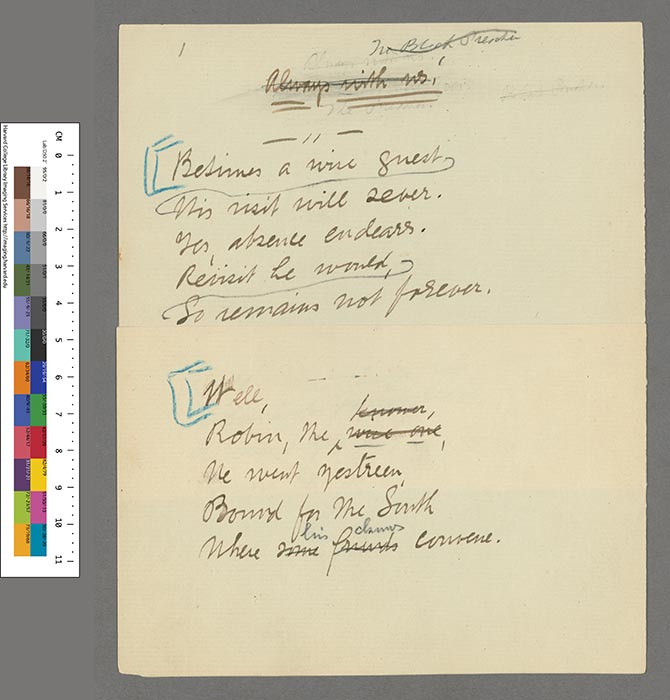 1
The Black Preacher
Always with us!
Betimes a wise guest
His visit will sever.
Yes, absence endears.
Revisit he would,
So remains not forever.
Well,
knower,
Robin, the wise one,
He went yestreen,
Bound for the South
his chums
Where some friends convene.
CM 0 1 2 3 4 5 6 7 8 9 10 11
Harvard College Library Imaging Services http://imaging.harvard.edu